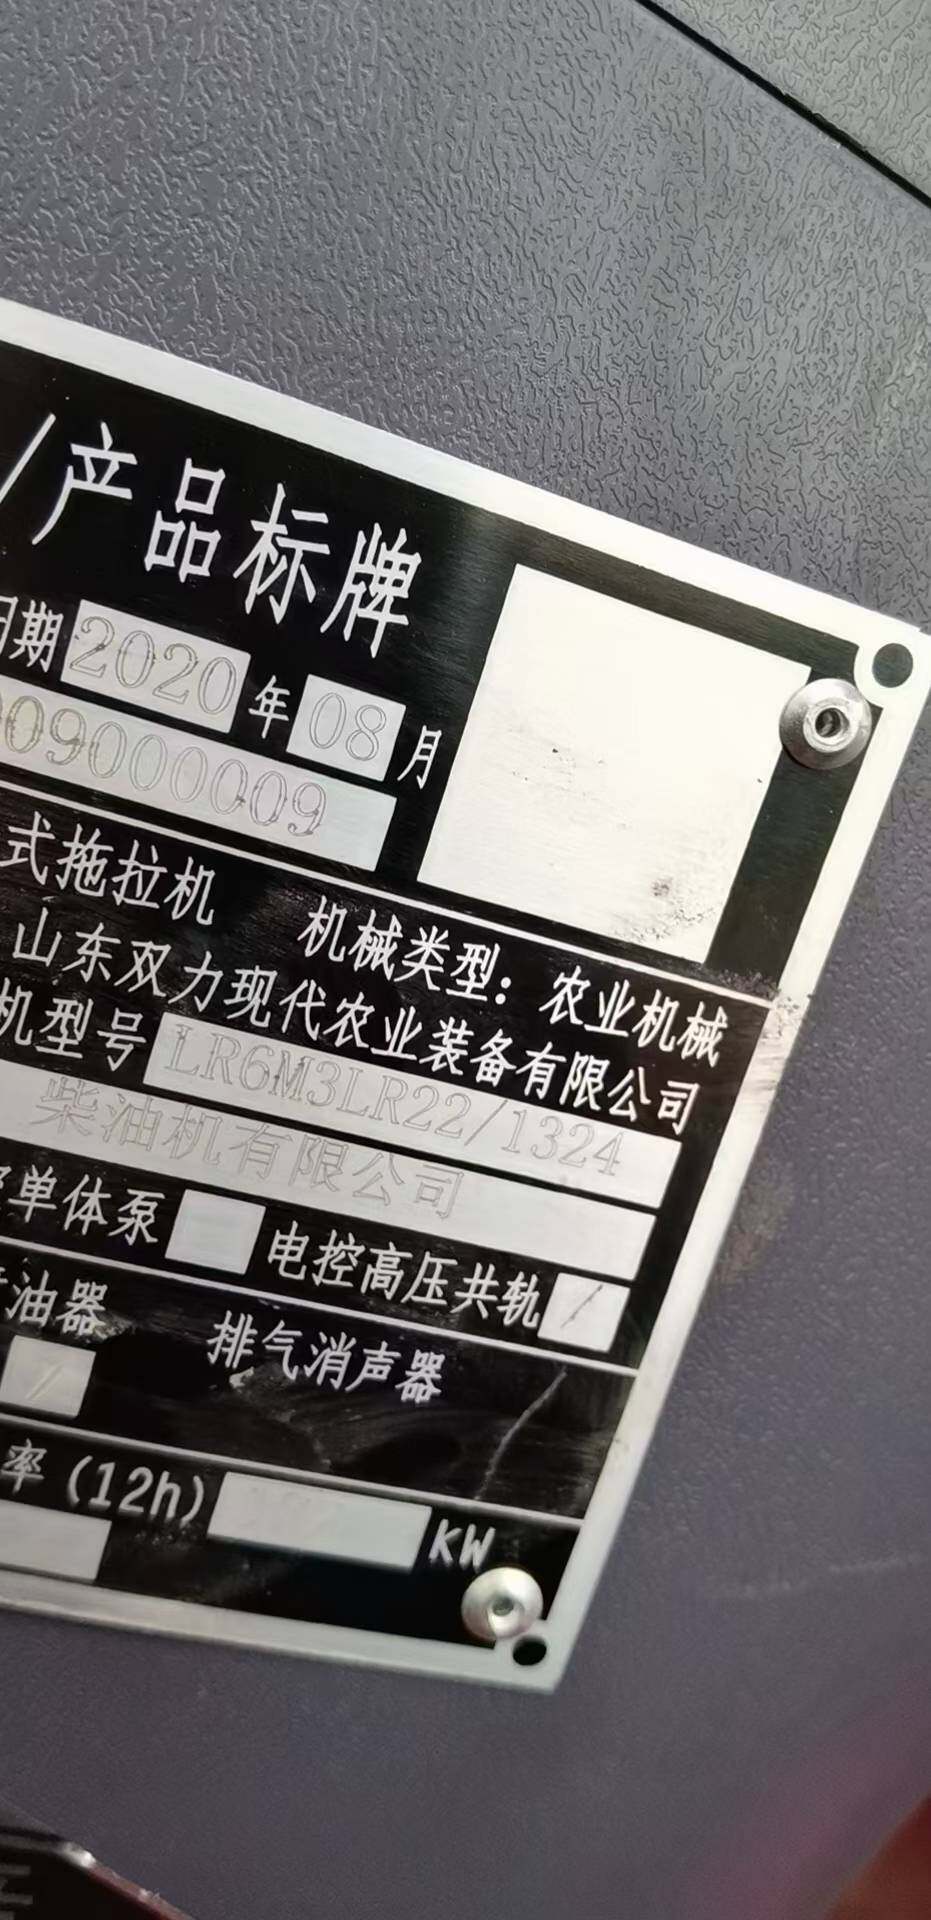 /产品标牌
期 2020 年 08 月
09000009
式拖拉机 机械类型：农业机械
山东双力现代农业装备有限公司
机型号 LR6M3LR22/1324
柴油机有限公司
单体泵 电控高压共轨 /
油器 排气消声器
/
率(12h) KW